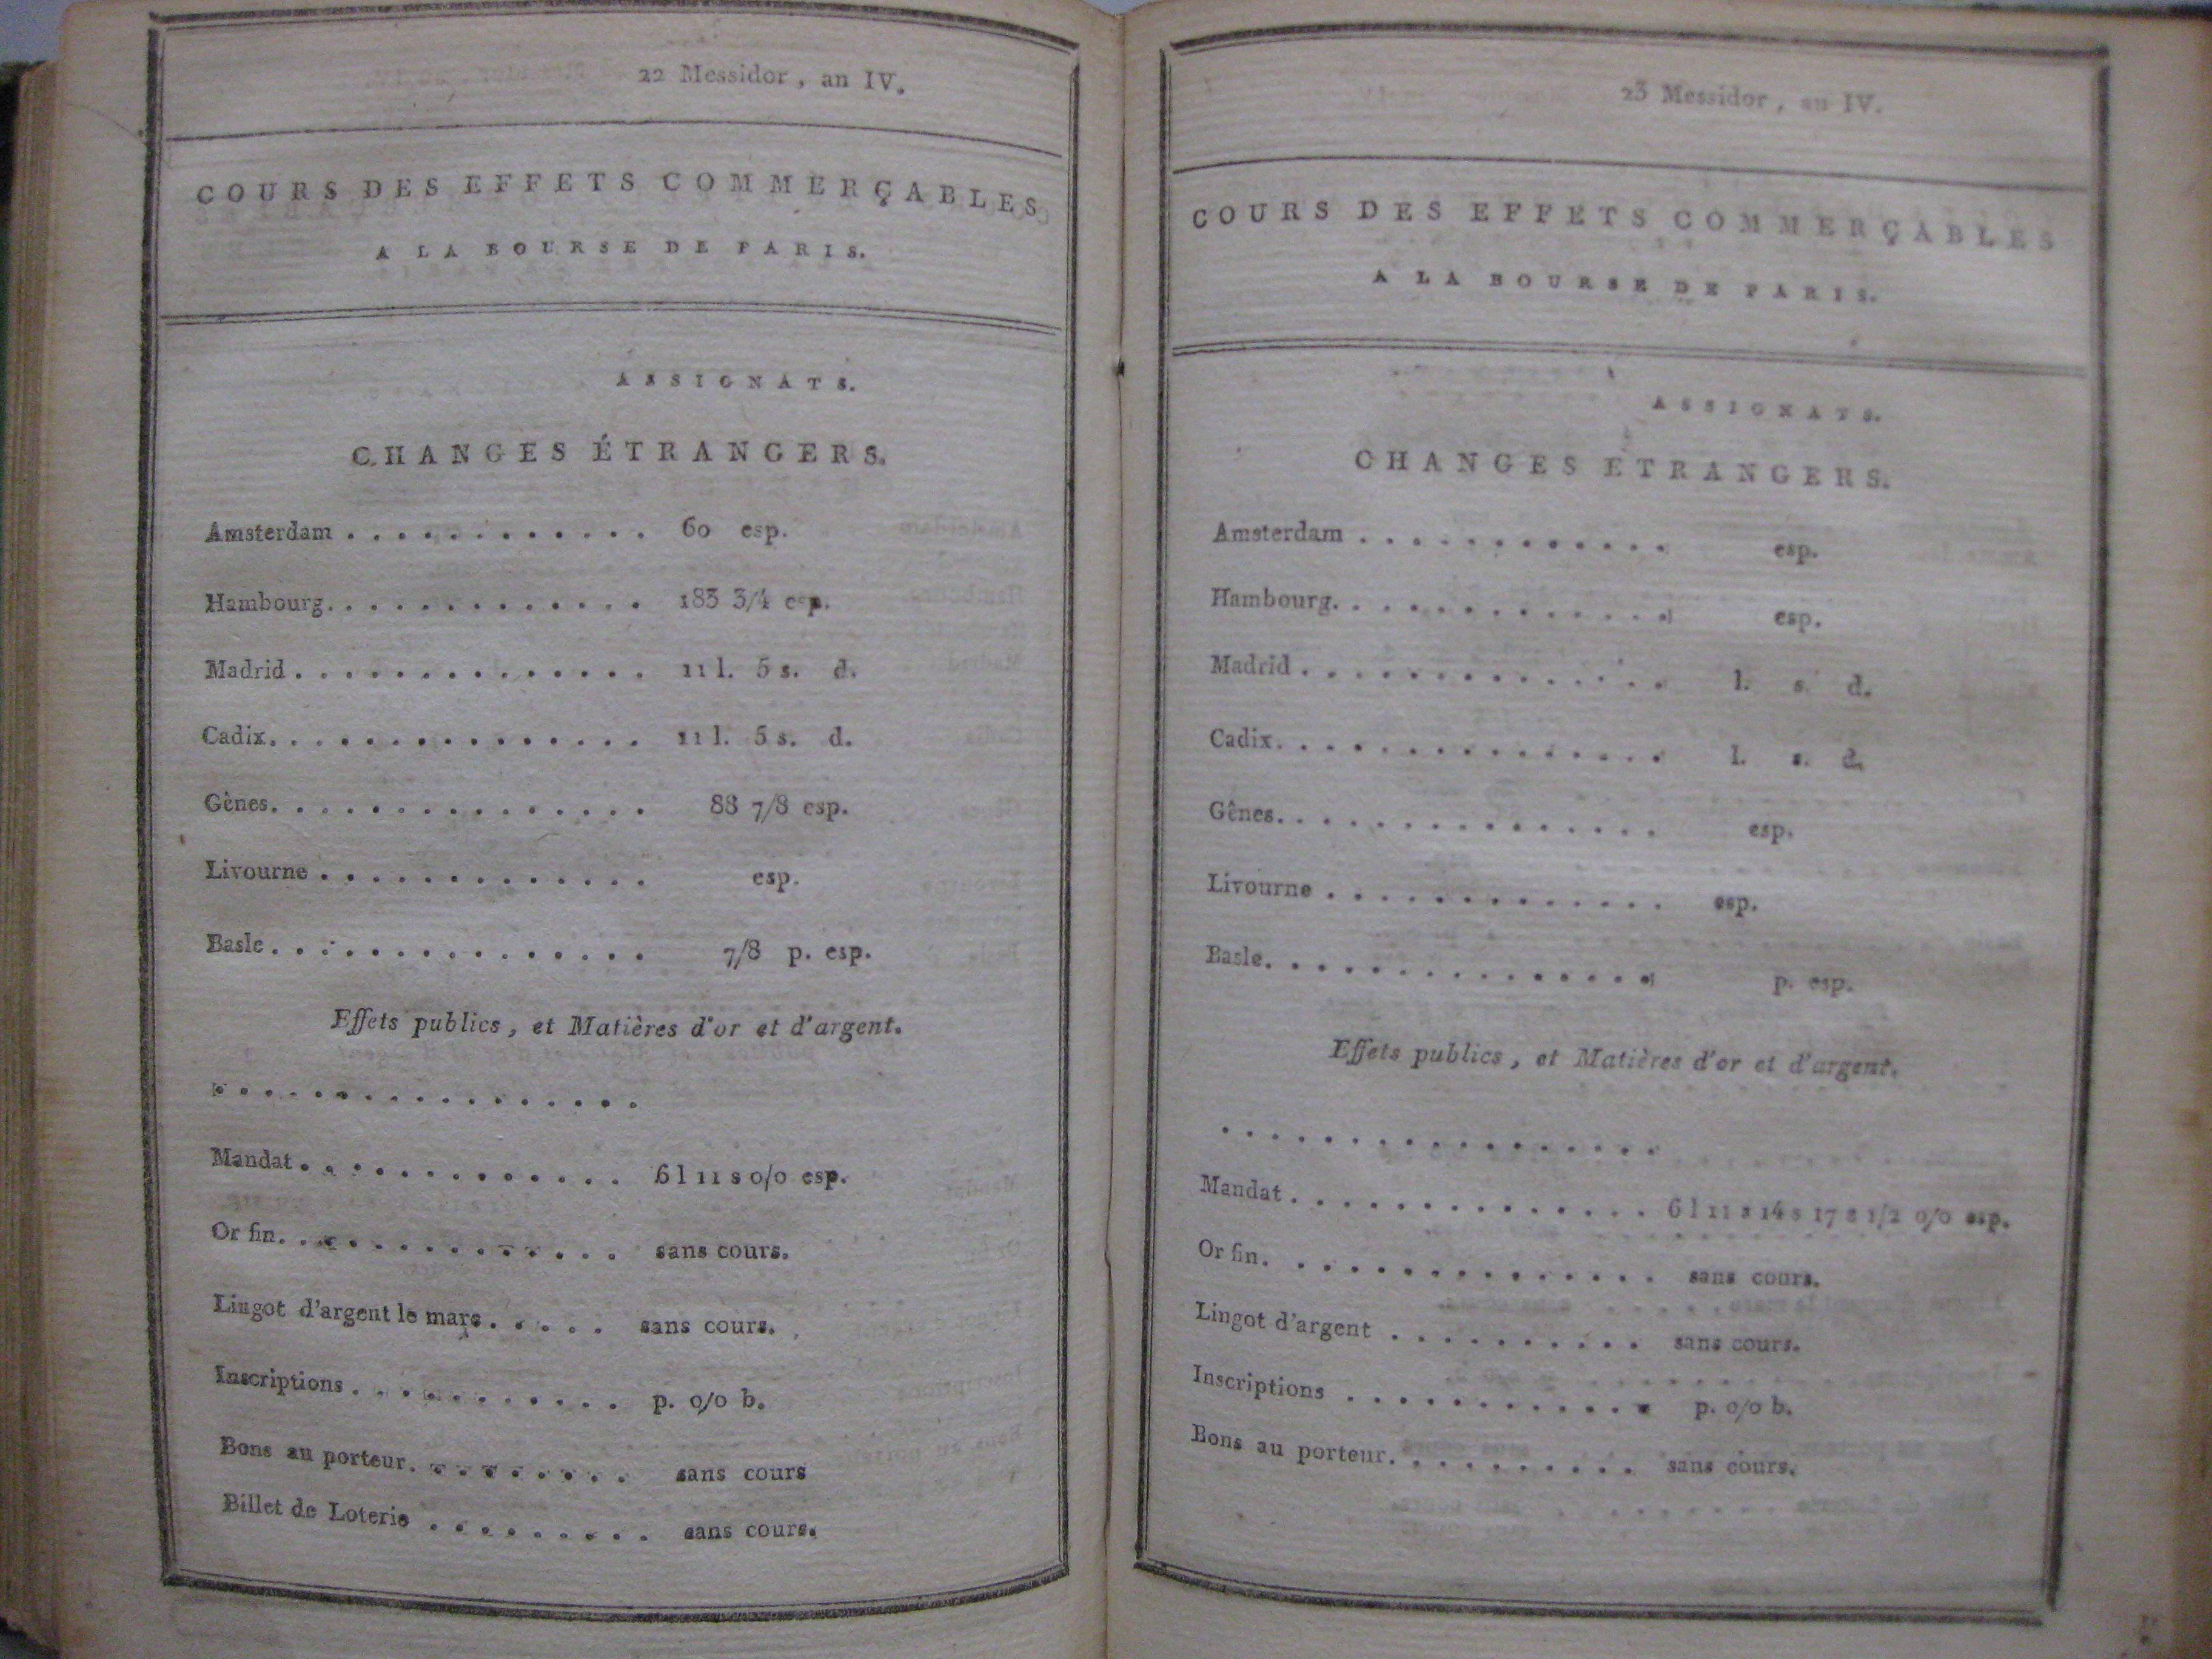 22 Messidor, an IV.
COURS DES EFFETS COMMERÇABLES
A LA BOURSE DE PARIS.
ASSIGNATS.
CHANGES ÉTRANGERS.
Amsterdam . . . . . . . . . . . . 60 esp.
Hambourg. . . . . . . . . . . . . 183 3/4 esp.
Madrid . . . . . . . . . . . . . . 11 l. 5 s. d.
Cadix. . . . . . . . . . . . . . . 11 l. 5 s. d.
Gênes. . . . . . . . . . . . . . . 88 7/8 esp.
Livourne . . . . . . . . . . . . . esp.
Basle. . . . . . . . . . . . . . . 7/8 p. esp.
Effets publics, et Matières d'or et d'argent.
. . . . . . . . . . . . . . . . .
Mandat . . . . . . . . . . . . . 6 l 11 s 0/0 esp.
Or fin. . . . . . . . . . . . . . sans cours.
Lingot d'argent le marc . . . . . sans cours.
Inscriptions . . . . . . . . . . . p. 0/0 b.
Bons au porteur. . . . . . . . . sans cours
Billet de Loterie . . . . . . . . . sans cours.
23 Messidor, an IV.
COURS DES EFFETS COMMERÇABLES
A LA BOURSE DE PARIS.
ASSIGNATS.
CHANGES ETRANGERS.
Amsterdam . . . . . . . . . . . . esp.
Hambourg. . . . . . . . . . . . . esp.
Madrid . . . . . . . . . . . . . . l. s. d.
Cadix. . . . . . . . . . . . . . . l. s. d.
Gênes. . . . . . . . . . . . . . . esp.
Livourne . . . . . . . . . . . . . esp.
Basle. . . . . . . . . . . . . . . p. esp.
Effets publics, et Matières d'or et d'argent.
. . . . . . . . . . . . . . . . .
Mandat . . . . . . . . . . . . . . 6 l 11 s 14 s 17 s 1/2 0/0 esp.
Or fin. . . . . . . . . . . . . . . sans cours.
Lingot d'argent . . . . . . . . . . sans cours.
Inscriptions . . . . . . . . . . . . p. 0/0 b.
Bons au porteur. . . . . . . . . . sans cours.